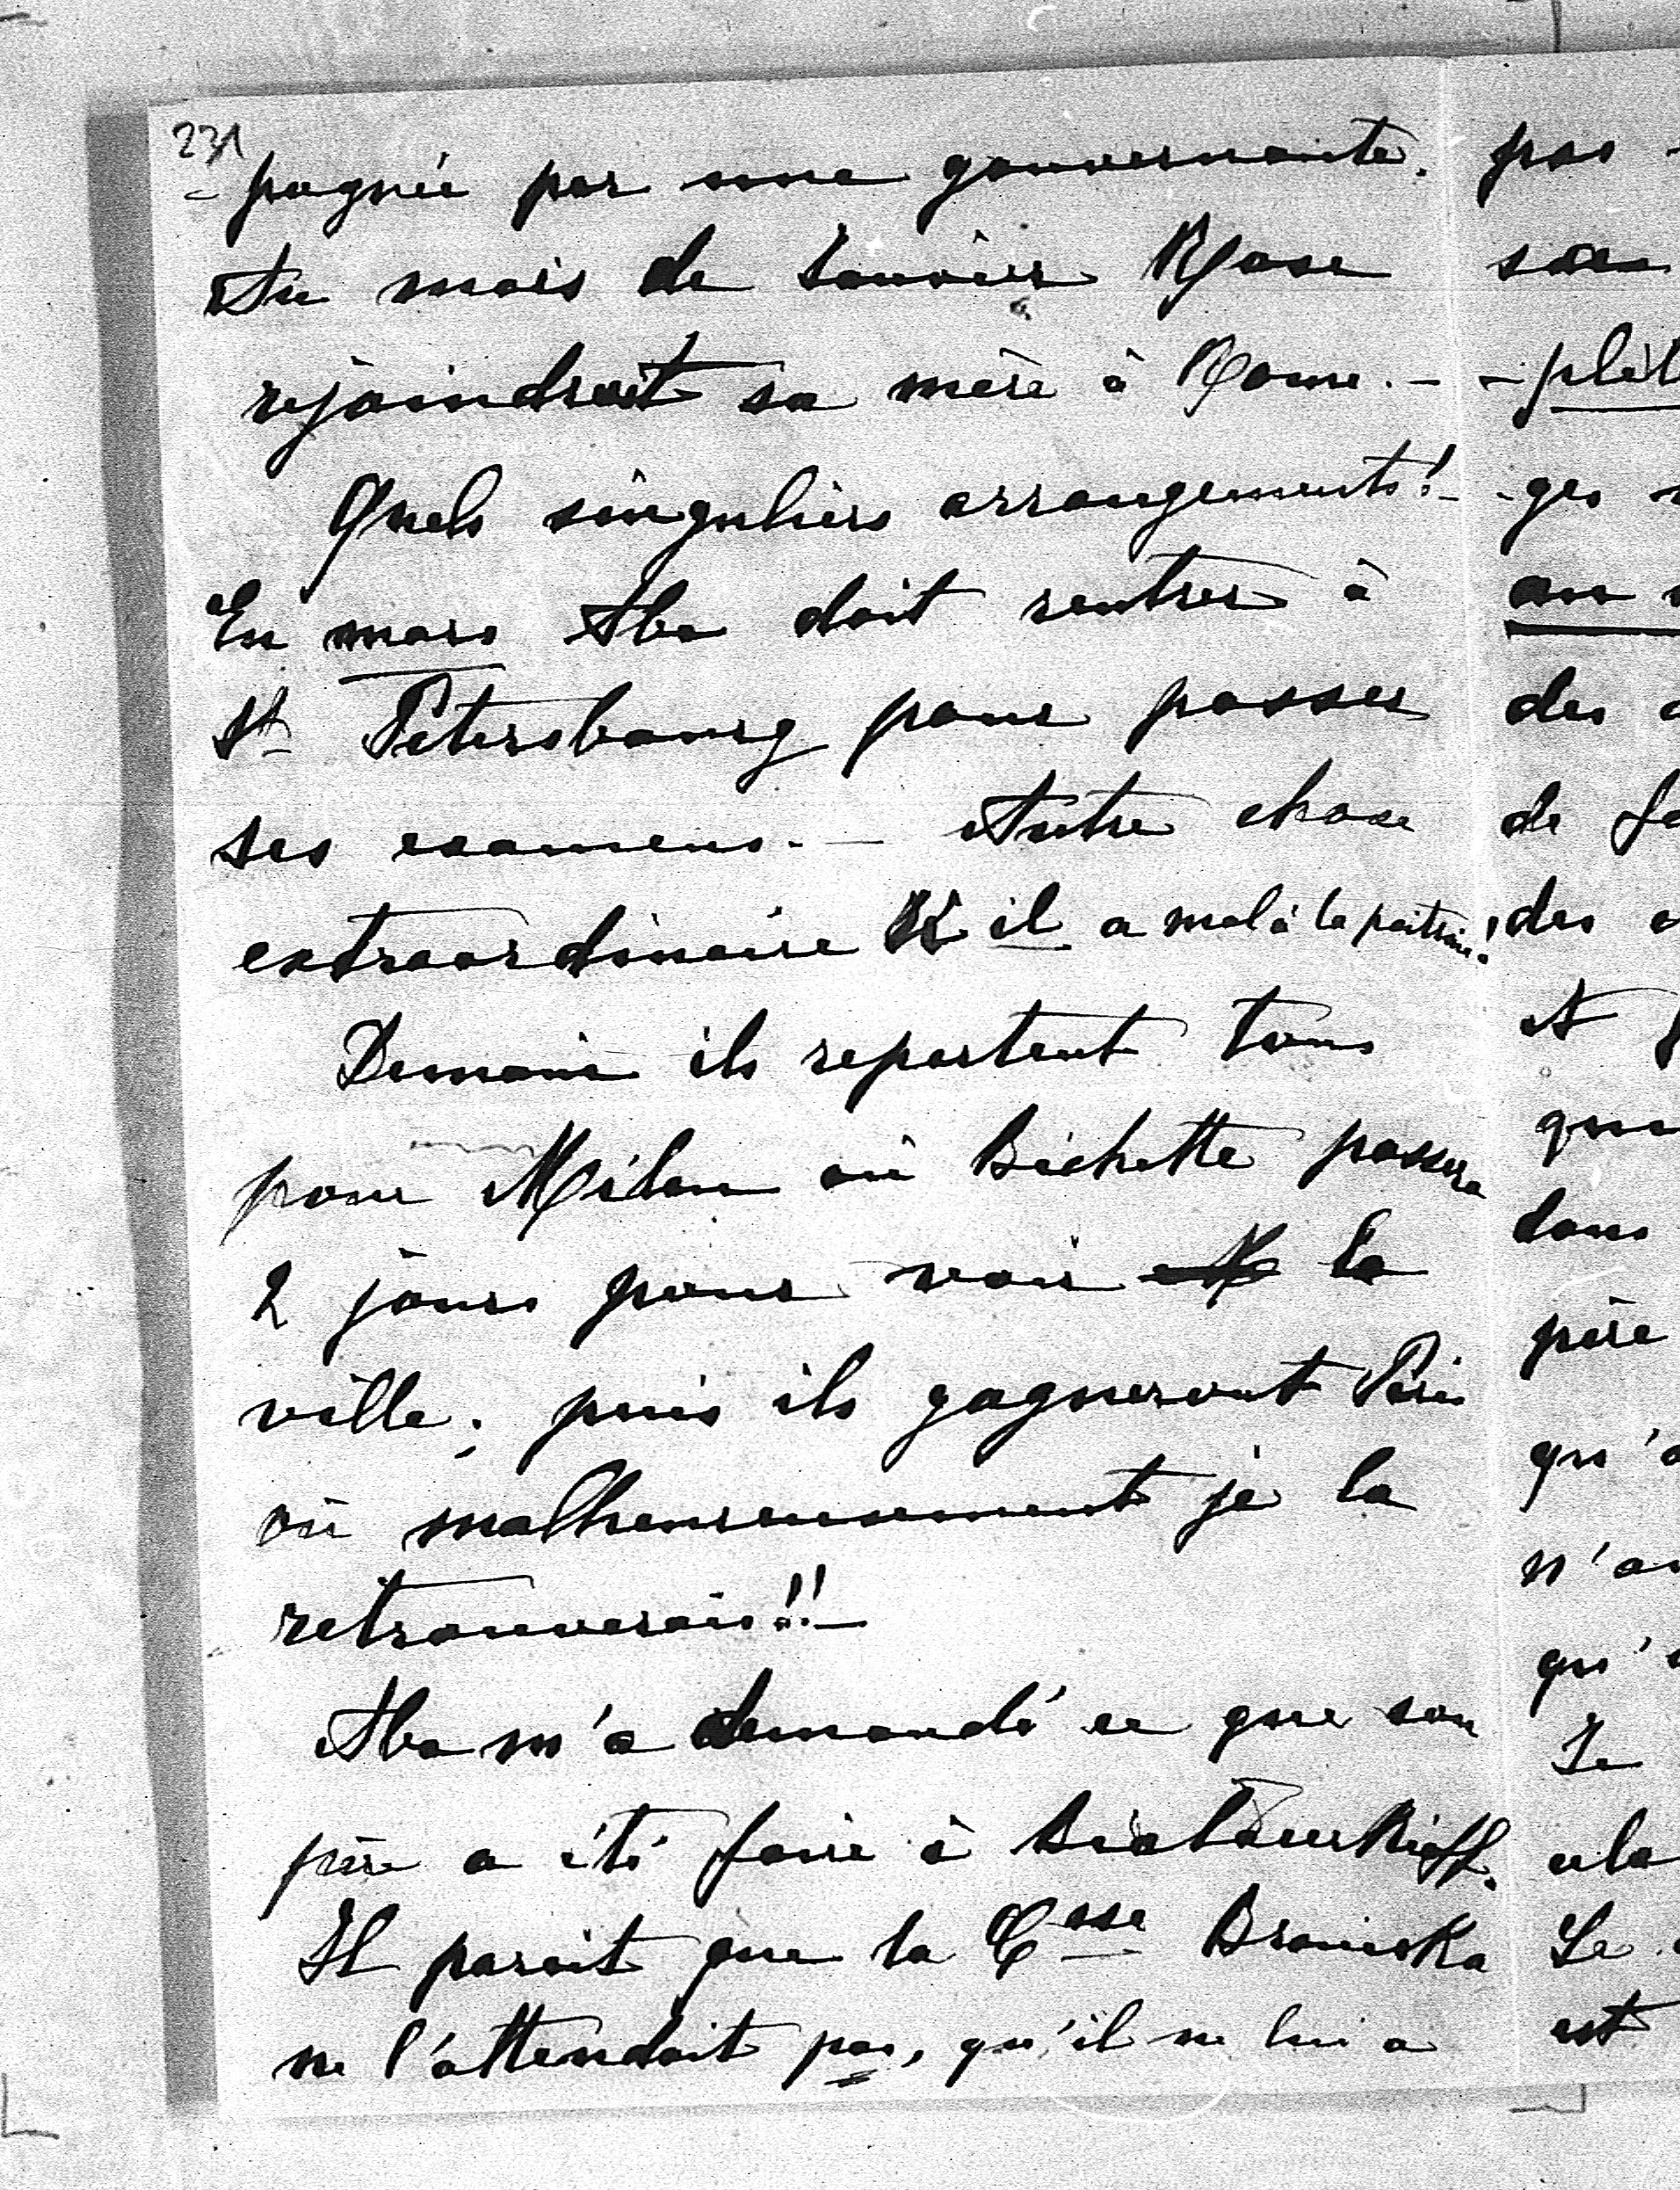 231
- pagnée par une gouvernante.
Au mois de Janvier Rose
rejoindrait sa mère à Rome. -
Quels singuliers arrangements! -
En mars Aba doit rentrer à
St Pétersbourg pour passer
ses examens. - Autre chose
extraordinaire il a mal à la poitrine!
Demain ils repartent tous
pour Milan où Bichette passera
2 jours pour voir la
ville; puis ils gagneront Paris
où malheureusement je la
retrouverais!! -
Aba m'a demandé ce que son
père a été faire à
Il parait que la Csse Braniska
ne l'attendait pas, qu'il ne lui a
pas
- plèt
- ges
an
des
de
des
et
dans
père
qu'
n'
qu'
Je
cela
Le
est